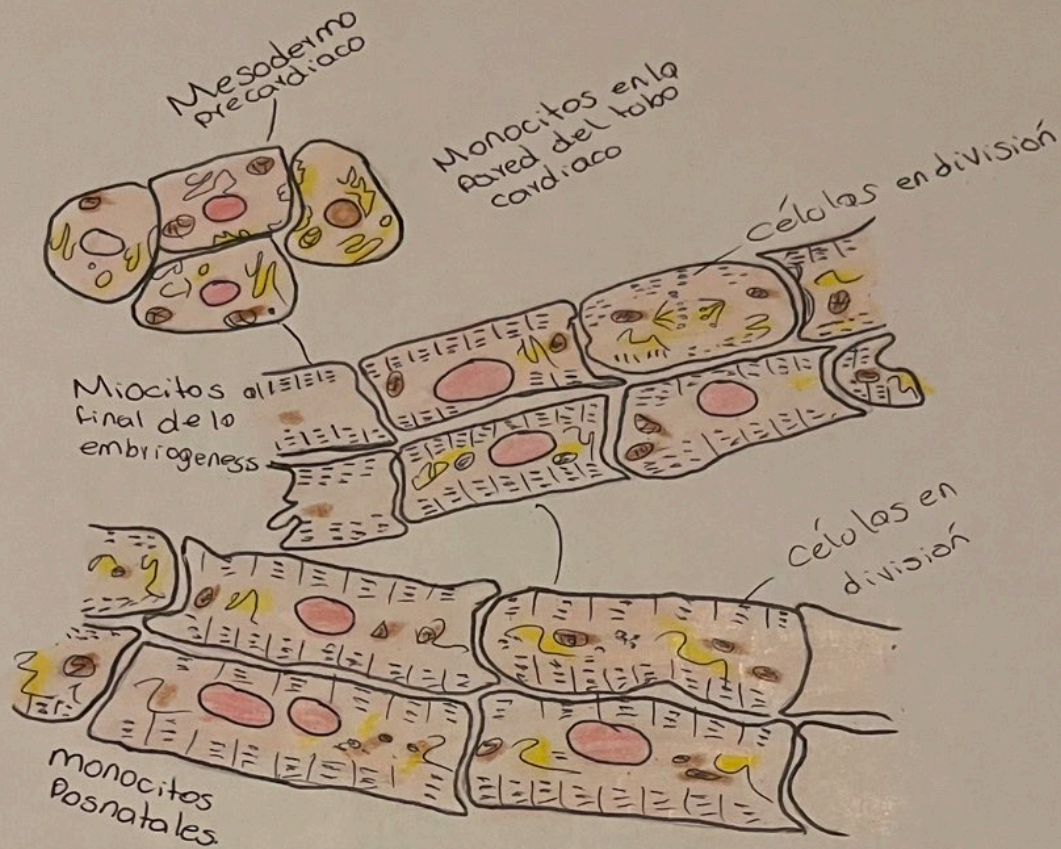 Mesodermo
precardiaco
Monocitos en la
pared del tobo
cardiaco
células en división
Miocitos al
final de la
embriogeness
células en
división
monocitos
Posnatales.